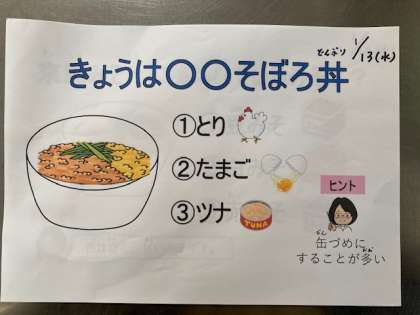 1/13(水)
どんぶり
きょうは〇〇そぼろ丼
①とり
②たまご
③ツナ
TUNA
ヒント
かん
缶づめに
おお
することが多い